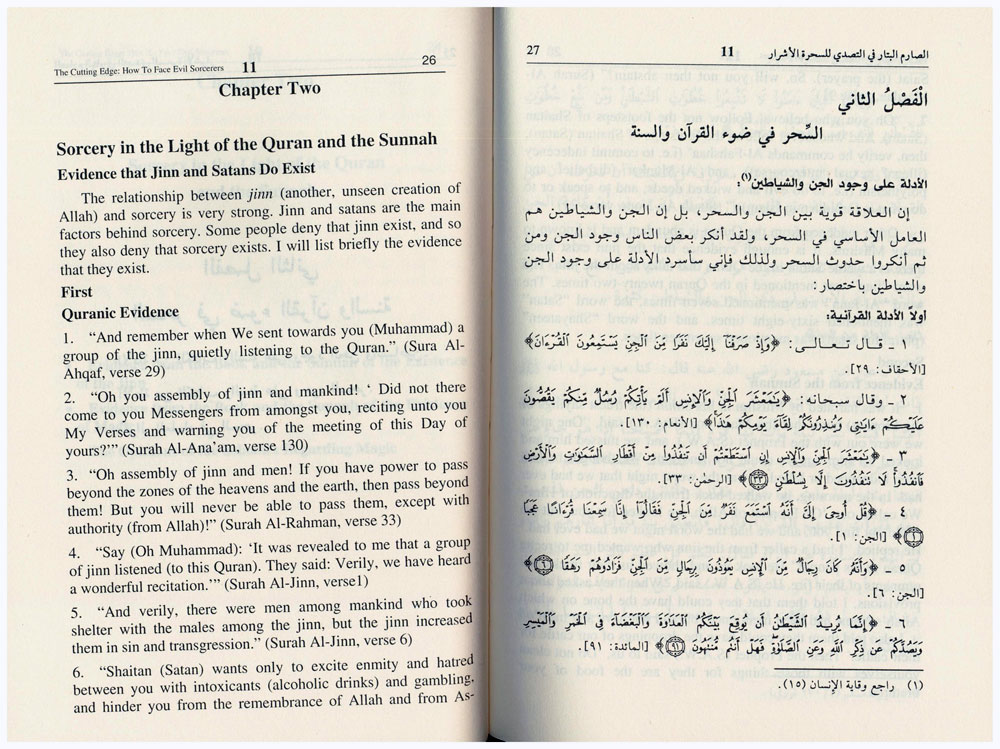 The Cutting Edge: How To Face Evil Sorcerers 11 26
Chapter Two
Sorcery in the Light of the Quran and the Sunnah
Evidence that Jinn and Satans Do Exist
The relationship between jinn (another, unseen creation of
Allah) and sorcery is very strong. Jinn and satans are the main
factors behind sorcery. Some people deny that jinn exist, and so
they also deny that sorcery exists. I will list briefly the evidence
that they exist.
First
Quranic Evidence
1. “And remember when We sent towards you (Muhammad) a
group of the jinn, quietly listening to the Quran.” (Sura Al-
Ahqaf, verse 29)
2. “Oh you assembly of jinn and mankind! ‘ Did not there
come to you Messengers from amongst you, reciting unto you
My Verses and warning you of the meeting of this Day of
yours?’” (Surah Al-Ana’am, verse 130)
3. “Oh assembly of jinn and men! If you have power to pass
beyond the zones of the heavens and the earth, then pass beyond
them! But you will never be able to pass them, except with
authority (from Allah)!” (Surah Al-Rahman, verse 33)
4. “Say (Oh Muhammad): ‘It was revealed to me that a group
of jinn listened (to this Quran). They said: Verily, we have heard
a wonderful recitation.’” (Surah Al-Jinn, verse1)
5. “And verily, there were men among mankind who took
shelter with the males among the jinn, but the jinn increased
them in sin and transgression.” (Surah Al-Jinn, verse 6)
6. “Shaitan (Satan) wants only to excite enmity and hatred
between you with intoxicants (alcoholic drinks) and gambling,
and hinder you from the remembrance of Allah and from As-
الصارم البتار في التصدي للسحرة الأشرار 11 27
الْفَصْلُ الثاني
السِّحر في ضوء القرآن والسنة
الأدلة على وجود الجن والشياطين(١):
إن العلاقة قوية بين الجن والسحر، بل إن الجن والشياطين هم
العامل الأساسي في السحر، ولقد أنكر بعض الناس وجود الجن ومن
ثم أنكروا حدوث السحر ولذلك فإني سأسرد الأدلة على وجود الجن
والشياطين باختصار:
أولاً الأدلة القرآنية:
١ - قال تعالى: ﴿وَإِذْ صَرَفْنَا إِلَيْكَ نَفَرًا مِّنَ الْجِنِّ يَسْتَمِعُونَ الْقُرْءَانَ﴾
[الأحقاف: ٢٩].
٢ - وقال سبحانه: ﴿يَٰمَعْشَرَ الْجِنِّ وَالْإِنسِ أَلَمْ يَأْتِكُمْ رُسُلٌ مِّنكُمْ يَقُصُّونَ
عَلَيْكُمْ ءَايَٰتِي وَيُنذِرُونَكُمْ لِقَآءَ يَوْمِكُمْ هَٰذَا﴾ [الأنعام: ١٣٠].
٣ - ﴿يَٰمَعْشَرَ الْجِنِّ وَالْإِنسِ إِنِ اسْتَطَعْتُمْ أَن تَنفُذُوا مِنْ أَقْطَارِ السَّمَٰوَٰتِ وَالْأَرْضِ
فَانفُذُوا لَا تَنفُذُونَ إِلَّا بِسُلْطَٰنٍ ﴿٣٣﴾﴾ [الرحمٰن: ٣٣].
٤ - ﴿قُلْ أُوحِيَ إِلَيَّ أَنَّهُ اسْتَمَعَ نَفَرٌ مِّنَ الْجِنِّ فَقَالُوا إِنَّا سَمِعْنَا قُرْءَانًا عَجَبًا
﴿١﴾﴾ [الجن: ١].
٥ - ﴿وَأَنَّهُ كَانَ رِجَالٌ مِّنَ الْإِنسِ يَعُوذُونَ بِرِجَالٍ مِّنَ الْجِنِّ فَزَادُوهُمْ رَهَقًا ﴿٦﴾﴾
[الجن: ٦].
٦ - ﴿إِنَّمَا يُرِيدُ الشَّيْطَٰنُ أَن يُوقِعَ بَيْنَكُمُ الْعَدَٰوَةَ وَالْبَغْضَآءَ فِي الْخَمْرِ وَالْمَيْسِرِ
وَيَصُدَّكُمْ عَن ذِكْرِ اللَّهِ وَعَنِ الصَّلَوٰةِ فَهَلْ أَنتُم مُّنتَهُونَ ﴿٩١﴾﴾ [المائدة: ٩١].
(١) راجع وقاية الإنسان (١٥).